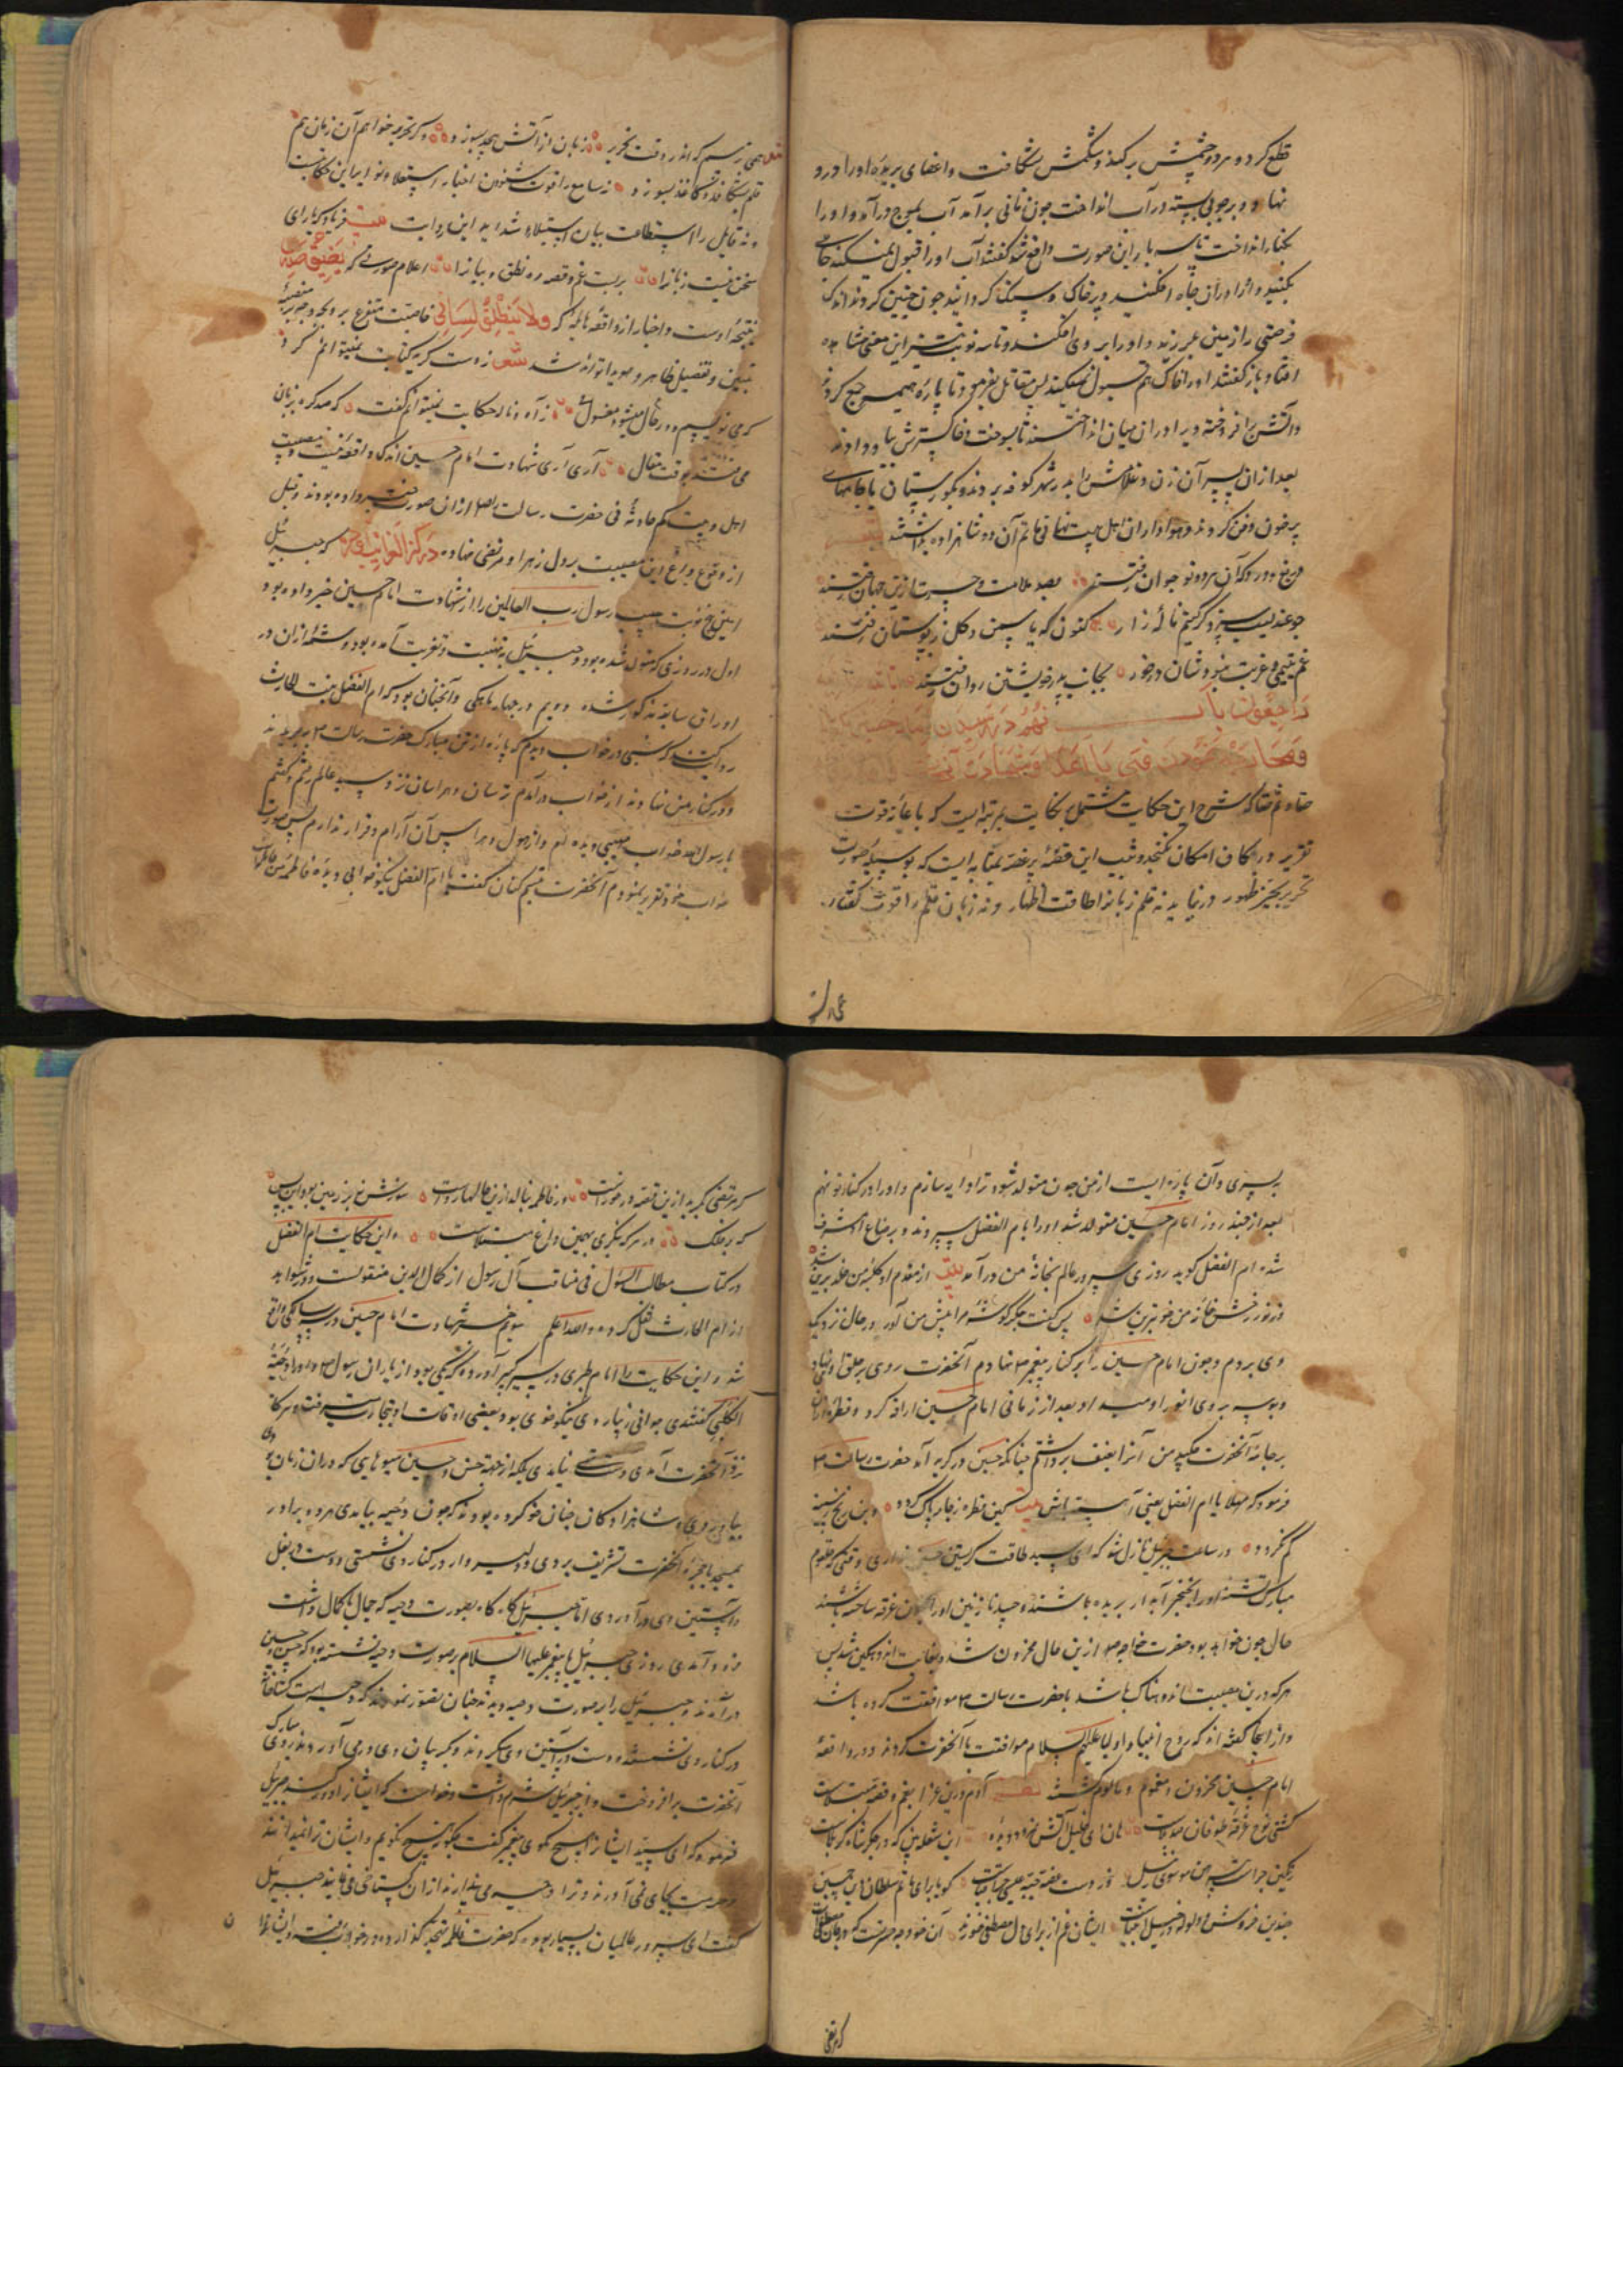 قطع کرد و هر دو چشمش بر کند و شکمش بشکافت و اعضای بریده او را درو
نهاد و بر چوبی بسته در آب انداخت چون نانی بر آمد آب بموج در آمد و او را
بکنار انداخت تا سه بار این صورت واقع شد گفتند آب او را قبول نمیکند چاهی
بکنید و او را در آن چاه افکنید و بر خاک و سنگ گردانید چون چنین کردند اندک
فرصتی را زمین بلرزید و او را بر وی افکند و تا سه نوبت این معنی مشاهده
افتاد باز گفتند او را خاک هم قبول نمیکند پس مقاتل بفرمود تا پاره هیمه جمع کردند
و آتش بر افروخته و او را در آن میان انداختند تا بسوخت و خاکسترش بباد دادند
بعد از آن پسر آن زن و غلامش را بدر شهر کوفه بردند و بگورستان با جامهای
پر خون دفن کردند و هواداران اهل بیت نهانی ماتم آن دو شاهزاده داشتند
دریغ و درد که آن هر دو نوجوان رفتند بصد ملامت و حسرت ازین جهان رفتند
چو عندلیب سزد گر کنیم ناله زار کنون که یاسمن و گل ز بوستان رفتند
غم یتیمی و غربت نبود شان در خور بجانب پدر خویشتن روان رفتند
حقا و ثم حقا که شرح این حکایت مشتمل بر نکایت بمرتبه ایست که باعانه قوت
تقریر در مکان امکان نگنجد و شب این قصه پر غصه بمثابه ایست که بوسیله صورت
تحریر بحیز ظهور در نیاید نه قلم زبانرا طاقت اظهار و نه زبان قلم را قوت گفتار
همی ترسم که اندر وقت تحریر زبان از آتش هجد بسوزد وگر تحریر خواهم آن زمان هم
قلم بشکافد و کاغذ بسوزد نه سامع را قوت شنودن اخبار استیلاء نوایر این حکایت
و نه قایل را استطاعت بیان استیلاء شداید این روایت بیت فریاد که یارای
سخن نیست زبانرا بر بست غم و قصه ره نطق و بیانرا اعلام صورتی که یضیق صدری
نتیجه اوست و اخبار از واقعه هایله که ولا ینطلق لسانی خاصیت متفرع بر وی بچه وجه بر منصه
تبیین و تفصیل ظاهر و هویدا تواند شد شعر ز دست گریه کتابت نمیتوانم کرد
که می نویسم و در حال میشود مغسول ز آه و ناله حکایت نمیتوانم گفت که صد گره بزبان
می فتد بوقت مقال آری آری شهادت امام حسین اندک واقعه نیست و مصیبت
اهل بیت کم حادثه نی حضرت رسالت بعد از آن صورت خبر داده بودند و قبل
از وقوع داغ این مصیبت بر دل زهرا و مرتضی نهاده که جبرئیل
امین پنج نوبت حبیب رسول رب العالمین را از شهادت امام حسین خبر داده بود
اول در روزی که متولد شده بود و جبرئیل به تهنیت و تعزیت آمده بود و شمه از آن در
اوراق سابقه مذکور شده دویم در چهار ماهگی و آنچنان بود که ام الفضل بنت الحارث
روایت کند که شبی در خواب دیدم که پاره از تن مبارک حضرت رسالت ص بریدند
و در کنار من نهادند از خواب در آمدم ترسان و هراسان نزد سید عالم رفتم و گفتم
یا رسول الله خواب مهیبی دیده ام و از هول و هراس آن آرام و قرار ندارم پس صورت
خواب خود تقریر نمودم آنحضرت تبسم کنان گفت یا ام الفضل نیکو خوابی دیده فاطمه من حامله است
بپسری و آن پاره ایست از من چون متولد شود ترا دایه سازم و او را در کنار تو نهم
بعد از چند روز امام حسین متولد شد او را بام الفضل سپردند و برضاع او مشرف
شد ام الفضل گوید روزی سرور عالم بخانه من در آمد بیت از مقدم او کلبه من خلد برین شد
وز نور رخش خانه من خوبترین شد پس گفت جگر گوشه مرا پیش من آور در حال نزدیک
وی بردم و چون امام حسین را بر کنار پیغمبر ص نهادم آنحضرت روی بر حلق او نهاد
و بوسه بر وی انور او میداد و بعد از زمانی امام حسین اراقه کرد و قطره از آن
بر جامه آنحضرت چکید من آنرا بعنف برداشتم چنانکه حسین در گریه آمد حضرت رسالت ص
فرمود که مهلا یا ام الفضل یعنی آهسته باش بیت کین قطره ز جامه پاک گردد وین رنج ز سینه
کم نگردد در ساعت جبرئیل نازل شد که ای سید طاقت گریستن حسین نداری وقتی که حلقوم
مبارکش تشنه او را بخنجر آبدار بریده باشند و جسد نازنین او را بخون غرقه ساخته باشند
حال چون خواهد بود حضرت خواجه ص ازین حال محزون شد و بغایت اندوهگین شد پس
هر که درین مصیبت اندوهناک باشد با حضرت رسالت ص موافقت کرده باشد
و از اینجا گفته اند که روح انبیا و اولیا علیهم السلام موافقت با آنحضرت کردند و در واقعه
امام حسین محزون و مغموم و مالوم گشتند آدم درین عزا بغم و غصه مبتلاست
کشتی نوح غرقه طوفان بلاست
کرمرتضی بگرید ازین قصه در خورست ور فاطمه بنالد ازین حالها رواست سوزش نه بر زمین بود این بس
که بر فلک در هر که بنگری بهمین داغ مبتلاست و این حکایت ام الفضل
در کتاب مطالب السئول فی مناقب آل رسول از کمال الدین منقولست و در شواهد
از ام الحارث نقل کرده و الله اعلم سیوم خبر شهادت امام حسین در سه سالگی واقع
شد و این حکایت را امام طبری در سیر کبیر آورده که یکی بود از یاران رسول ص و او را دحیه
الکلبی گفتندی جوانی زیبا روی نیکو خوی بود و بعضی اوقات او بتجارت میرفت و هر گاه
نزد آنحضرت آمدی دست تهی نیامدی بلکه از جهة حسن و حسین میوهایی که در آن زمان بودی
بیاوردی و شاهزادگان چنان خو کرده بودند که چون دحیه بیامدی هر دو برادر
بمسجد یا حجره آنحضرت تشریف بردی و دلیروار در کنار وی نشستی و دست در بغل
و آستین وی در آوردی اما جبرئیل گاه گاه بصورت دحیه که جمال با کمال داشت
فرود آمدی روزی جبرئیل با پیغمبر علیهما السلام بر صورت دحیه نشسته بود که حسن و حسین
در آمدند و جبرئیل را بر صورت دحیه دیدند چنان تصور نمودند که دحیه است گستاخانه
در کنار وی نشستند و دست در آستین وی میکردند و گریبان وی در می آوردند روی مبارک
آنحضرت بر افروخت و از جبرئیل شرم داشت و خواست که ایشانرا دور کند جبرئیل
فرمود که ای سید ایشانرا هیچ مگوی پیغمبر گفت چگونه هیچ نگویم و ایشان ترا نمیدانند
و حرمت بجای نمی آورند و ترا دحیه می پندارند از آن گستاخی می نمایند جبرئیل
گفت ای سرور عالمیان بسیار بود که حضرت فاطمه تهجد گذارده و در خواب رفته و ایشانرا